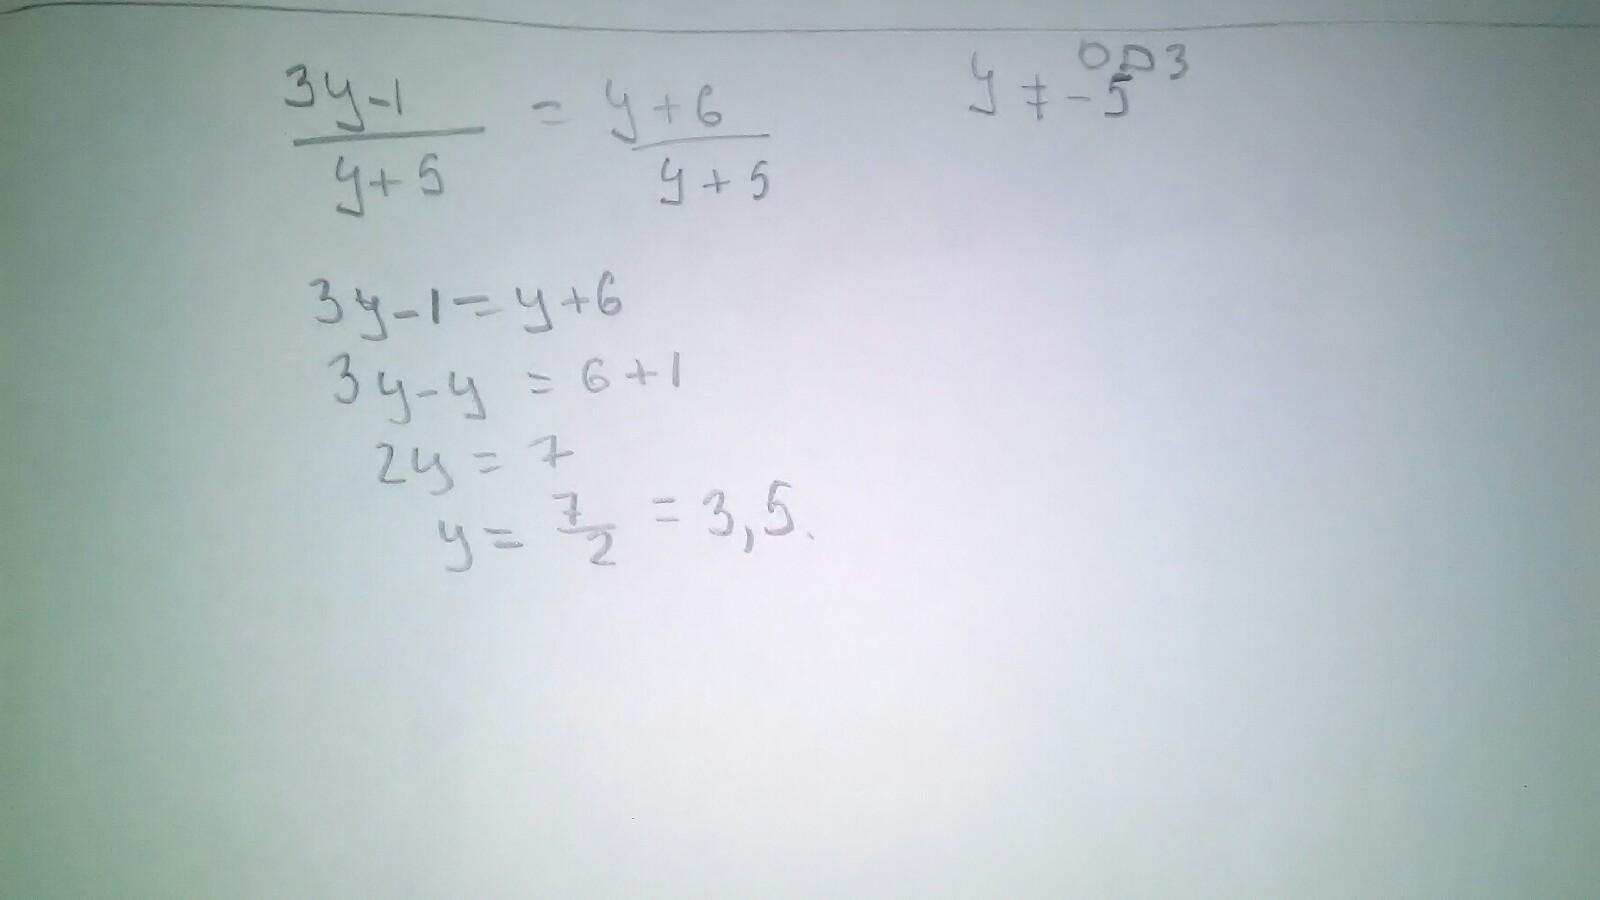 (3y-1)/(y+5) = (y+6)/(y+5)
ОДЗ
y ≠ -5
3y-1=y+6
3y-y = 6+1
2y = 7
y = 7/2 = 3,5.